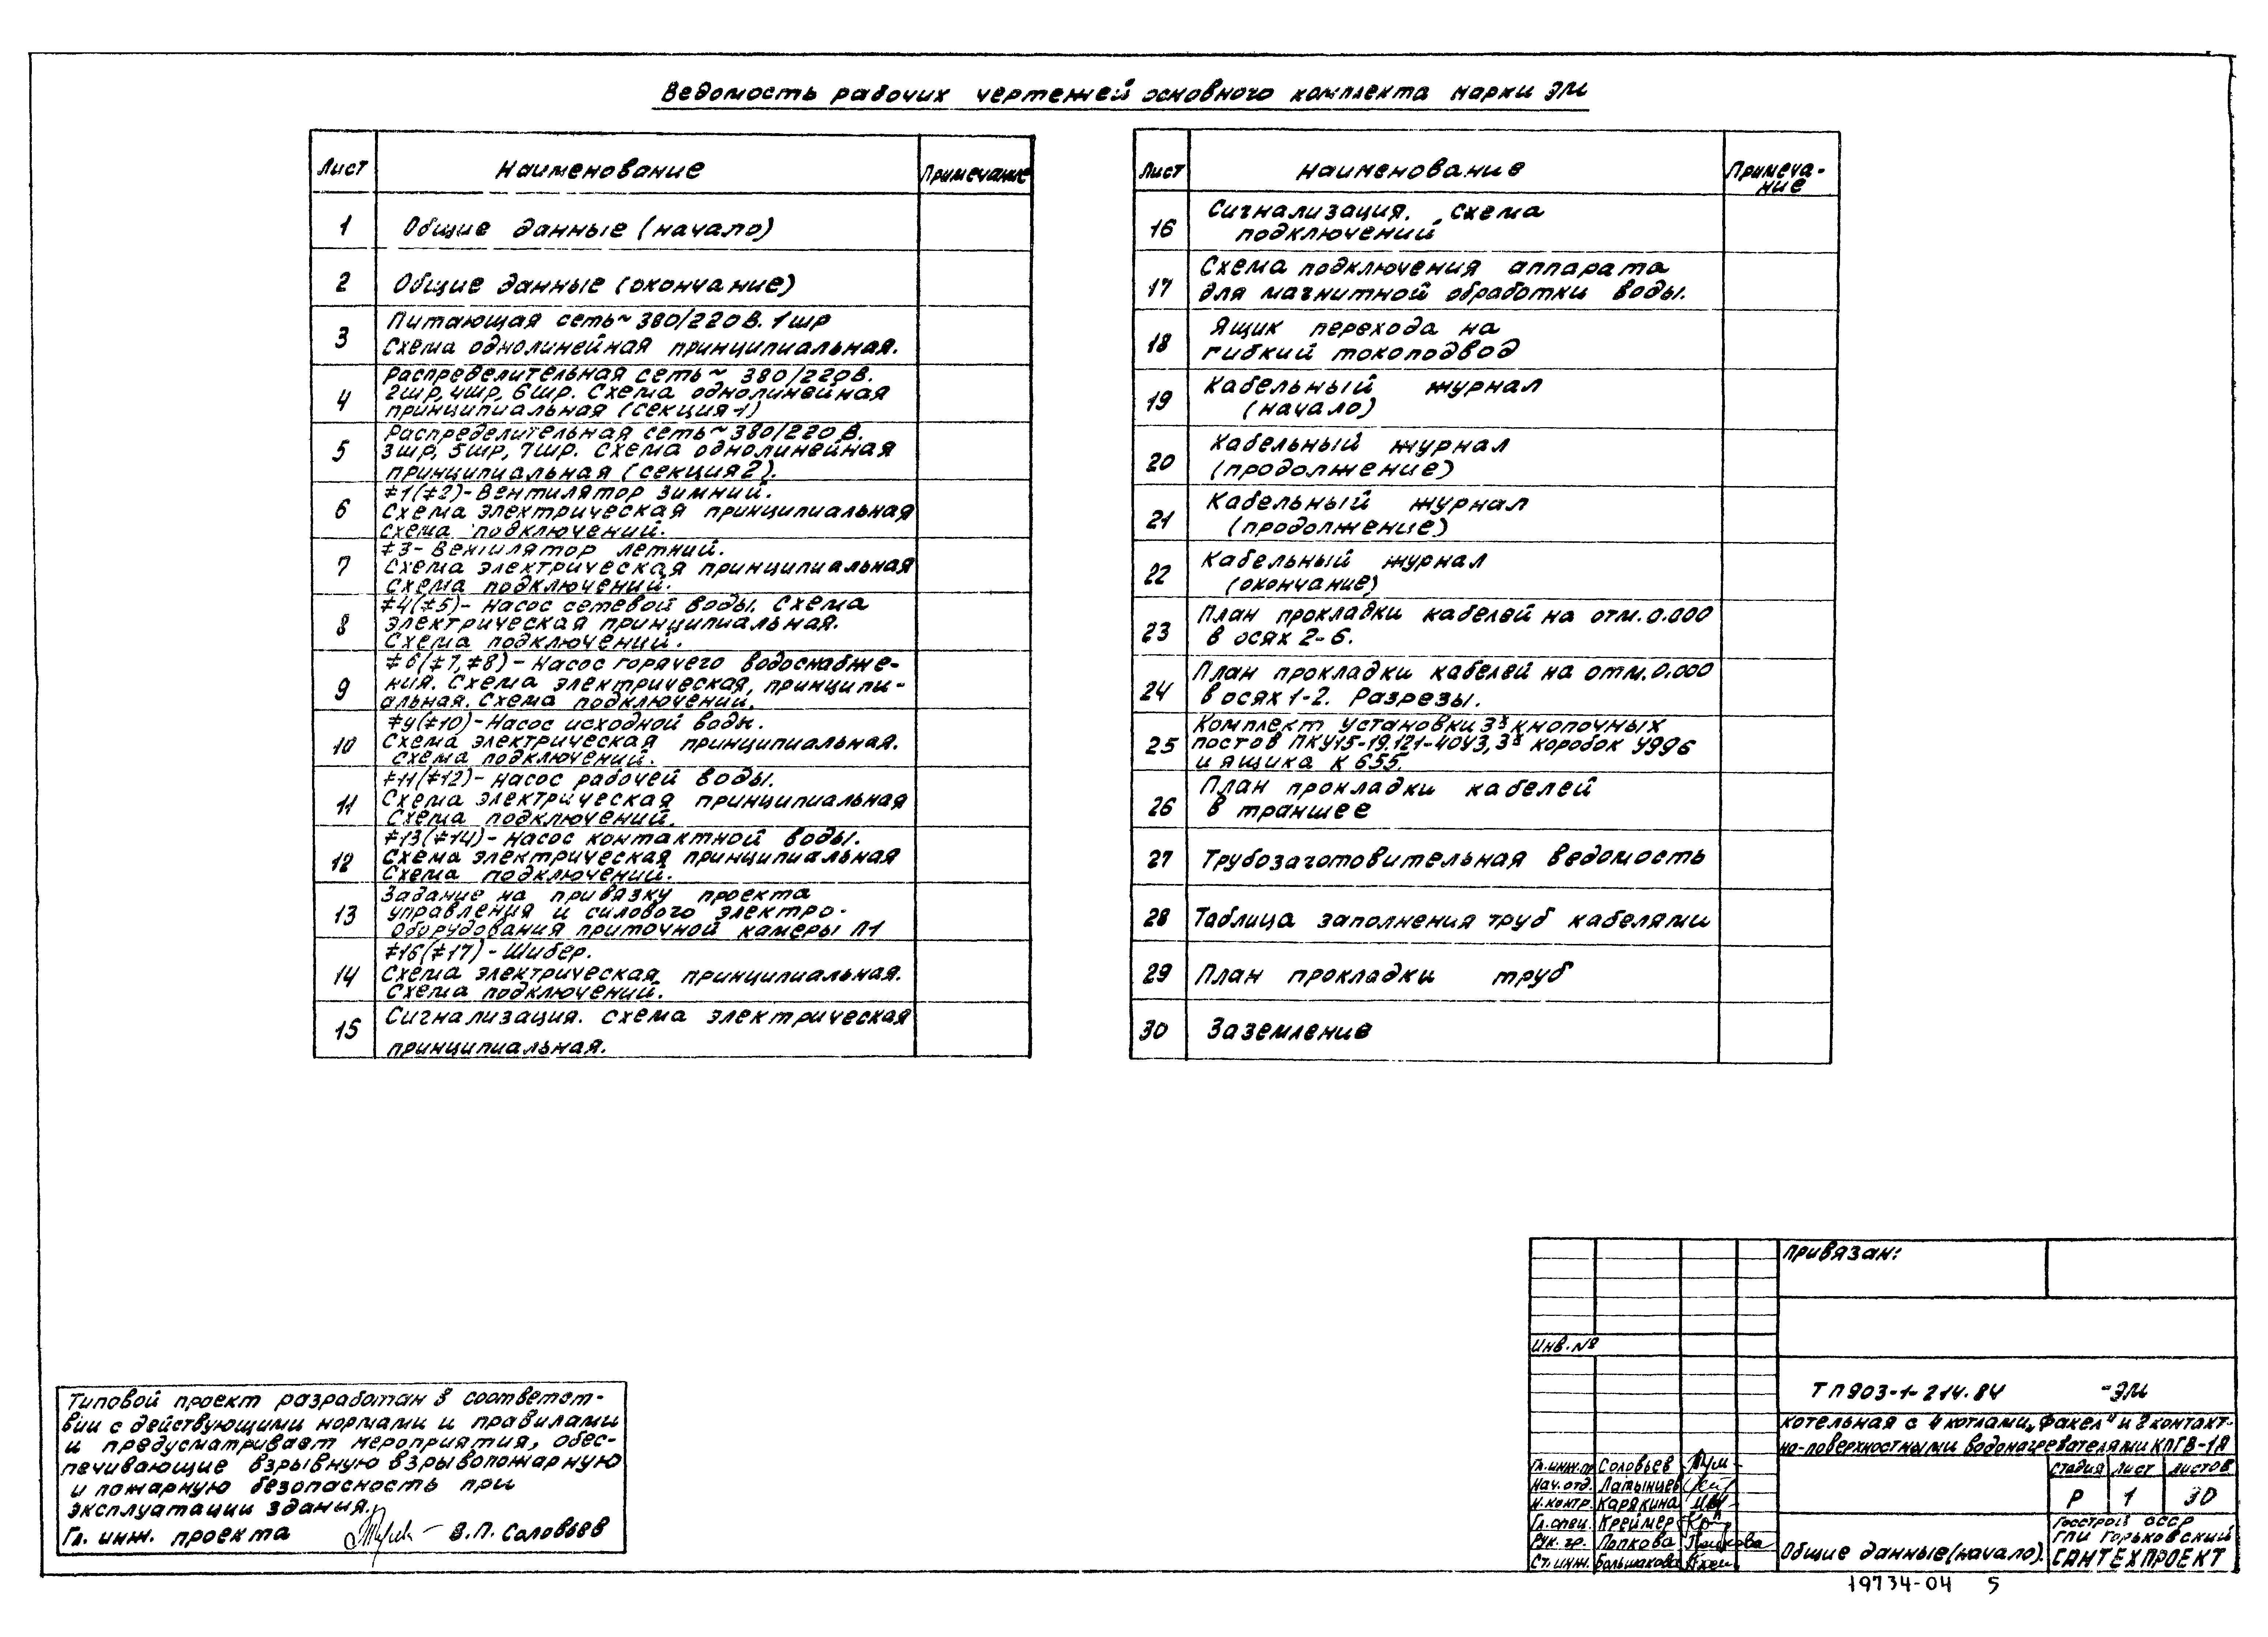 Ведомость рабочих чертежей основного комплекта марки ЭМ
Лист Наименование Примечание
1 Общие данные (начало)
2 Общие данные (окончание)
3 Питающая сеть ~ 380/220 В. 1шр
Схема однолинейная принципиальная.
4 Распределительная сеть ~ 380/220В.
2шр, 4шр, 6шр. Схема однолинейная
принципиальная (секция-1)
5 Распределительная сеть ~ 380/220 В.
3шр, 5шр, 7шр. Схема однолинейная
принципиальная (секция 2).
6 ≠1(≠2)- Вентилятор зимний.
Схема электрическая принципиальная
Схема подключений.
7 ≠3- Вентилятор летний.
Схема электрическая принципиальная
Схема подключений.
8 ≠4(≠5)- Насос сетевой воды. Схема
электрическая принципиальная.
Схема подключений.
9 ≠6(≠7, ≠8) - Насос горячего водоснабже-
ния. Схема электрическая, принципи-
альная. Схема подключений.
10 ≠9(≠10)- Насос исходной воды.
Схема электрическая принципиальная.
Схема подключений.
11 ≠11(≠12)- Насос рабочей воды.
Схема электрическая принципиальная
Схема подключений.
12 ≠13(≠14)- Насос контактной воды.
Схема электрическая принципиальная
Схема подключений.
13 Задание на привязку проекта
управления и силового электро-
оборудования приточной камеры П1
14 ≠16(≠17) - Шибер.
Схема электрическая принципиальная.
Схема подключений.
15 Сигнализация. Схема электрическая
принципиальная.
Лист Наименование Примеча-
ние
16 Сигнализация. Схема
подключений
17 Схема подключения аппарата
для магнитной обработки воды.
18 Ящик перехода на
гибкий токоподвод
19 Кабельный журнал
(начало)
20 Кабельный журнал
(продолжение)
21 Кабельный журнал
(продолжение)
22 Кабельный журнал
(окончание)
23 План прокладки кабелей на отм. 0.000
в осях 2-6.
24 План прокладки кабелей на отм. 0.000
в осях 1-2. Разрезы.
25 Комплект установки 3х кнопочных
постов ПКУ15-19.121-40У3, 3х коробок У996
и ящика К 655.
26 План прокладки кабелей
в траншее
27 Трубозаготовительная ведомость
28 Таблица заполнения труб кабелями
29 План прокладки труб
30 Заземление
Типовой проект разработан в соответст-
вии с действующими нормами и правилами
и предусматривает мероприятия, обес-
печивающие взрывную взрывопожарную
и пожарную безопасность при
эксплуатации здания.
Гл. инж. проекта В.П. Соловьев
Привязан:
Инв. №
ТП 903-1-214.84 -ЭМ
Котельная с 4 котлами „Факел" и 2 контакт-
но-поверхностными водонагревателями КПГВ-1А
Гл. инж. пр Соловьев
Нач. отд. Латынцев
Н. контр. Карякина
Гл. спец. Креймер
Рук. гр. Попкова Попкова
Ст. инж. Большакова
Стадия Лист Листов
Р 1 30
Общие данные (начало).
Госстрой СССР
ГПИ Горьковский
САНТЕХПРОЕКТ
19734-04 5